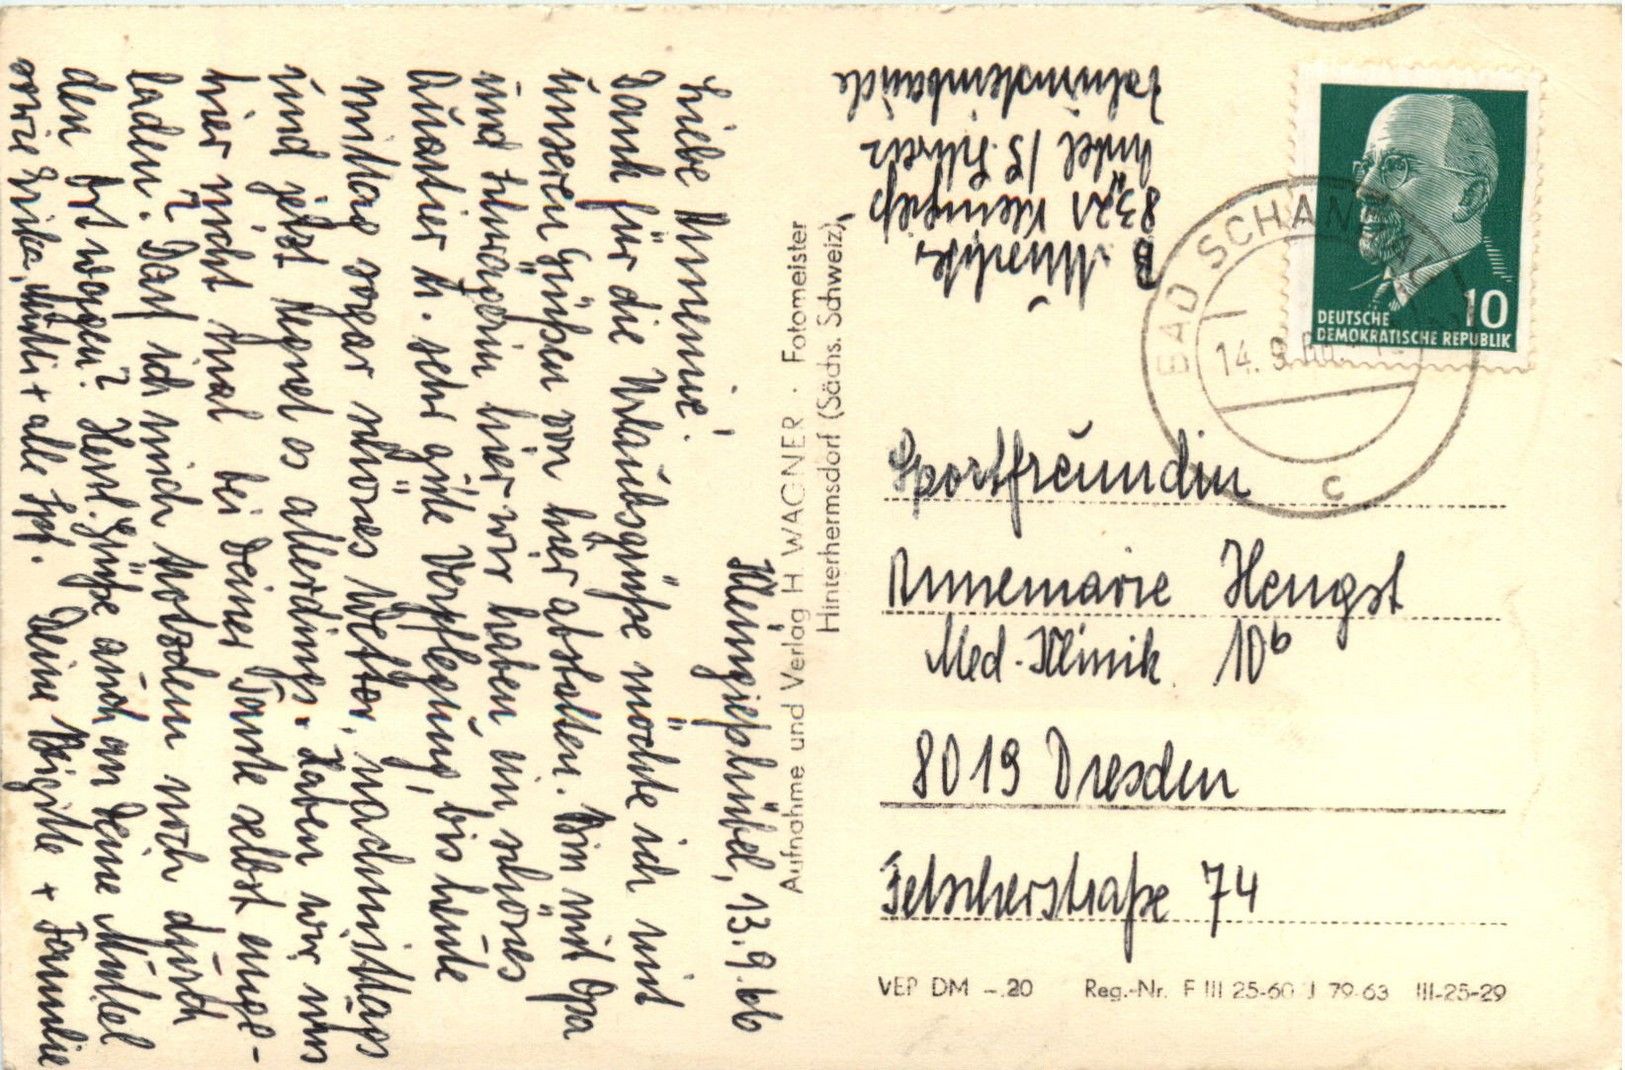 Kleingießhübel, 13.9.66
Liebe Annemie!
Dank für die Urlaubsgrüße möchte ich mit
unseren Grüßen von hier abstatten. Bin mit Opa
und hier wir haben ein schönes
Quartier u. sehr gute Verpflegung, bis heute
mittag sogar schönes Wetter, nachmittags
und jetzt regnet es allerdings. Haben wir uns
hier nicht mal bei Deiner Tante selbst einge-
laden. Darf ich mich trotzdem noch durch
den Ort wagen? Herzl. Grüße auch an Deine Muttel
sowie Erika, + alle Spf. Deine Brigitte + Familie
Aufnahme und Verlag H. WAGNER · Fotomeister
Hinterhermsdorf (Sächs. Schweiz)
B.
8321 Kleingieß
hübel
Zschirnsteinbaude
BAD SCHANDAU
14. 9. 66
c
DEUTSCHE
DEMOKRATISCHE REPUBLIK
10
Sportfreundin
Annemarie Hengst
Med.-Klinik 10b
8019 Dresden
Fetscherstraße 74
VEP DM -.20 Reg.-Nr. F III 25-60 J 79-63 III-25-29